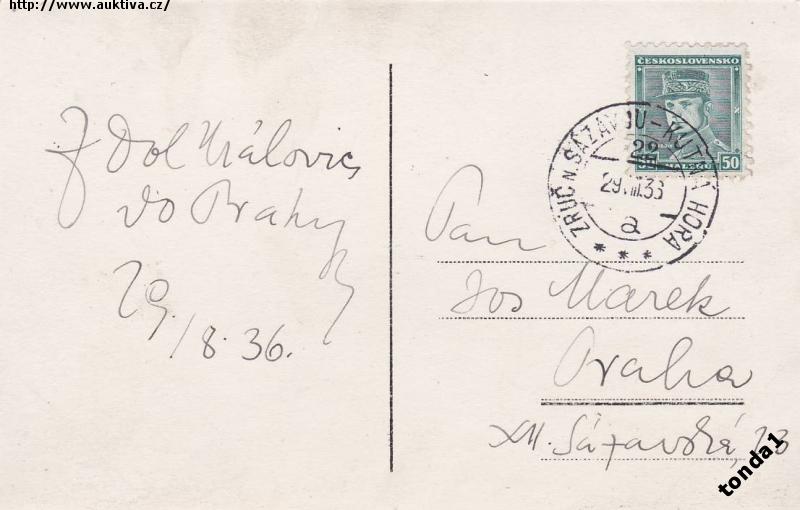 http://www.auktiva.cz/
Z Dol Královic
do Prahy
29/8 36.
ČESKOSLOVENSKO
50
ZRUČ N. SÁZAVOU - KUTNÁ HORA
22
29.VIII.36
a
* * *
Pan
Jos Marek
Praha
XII. Sázavská, 23
tonda1